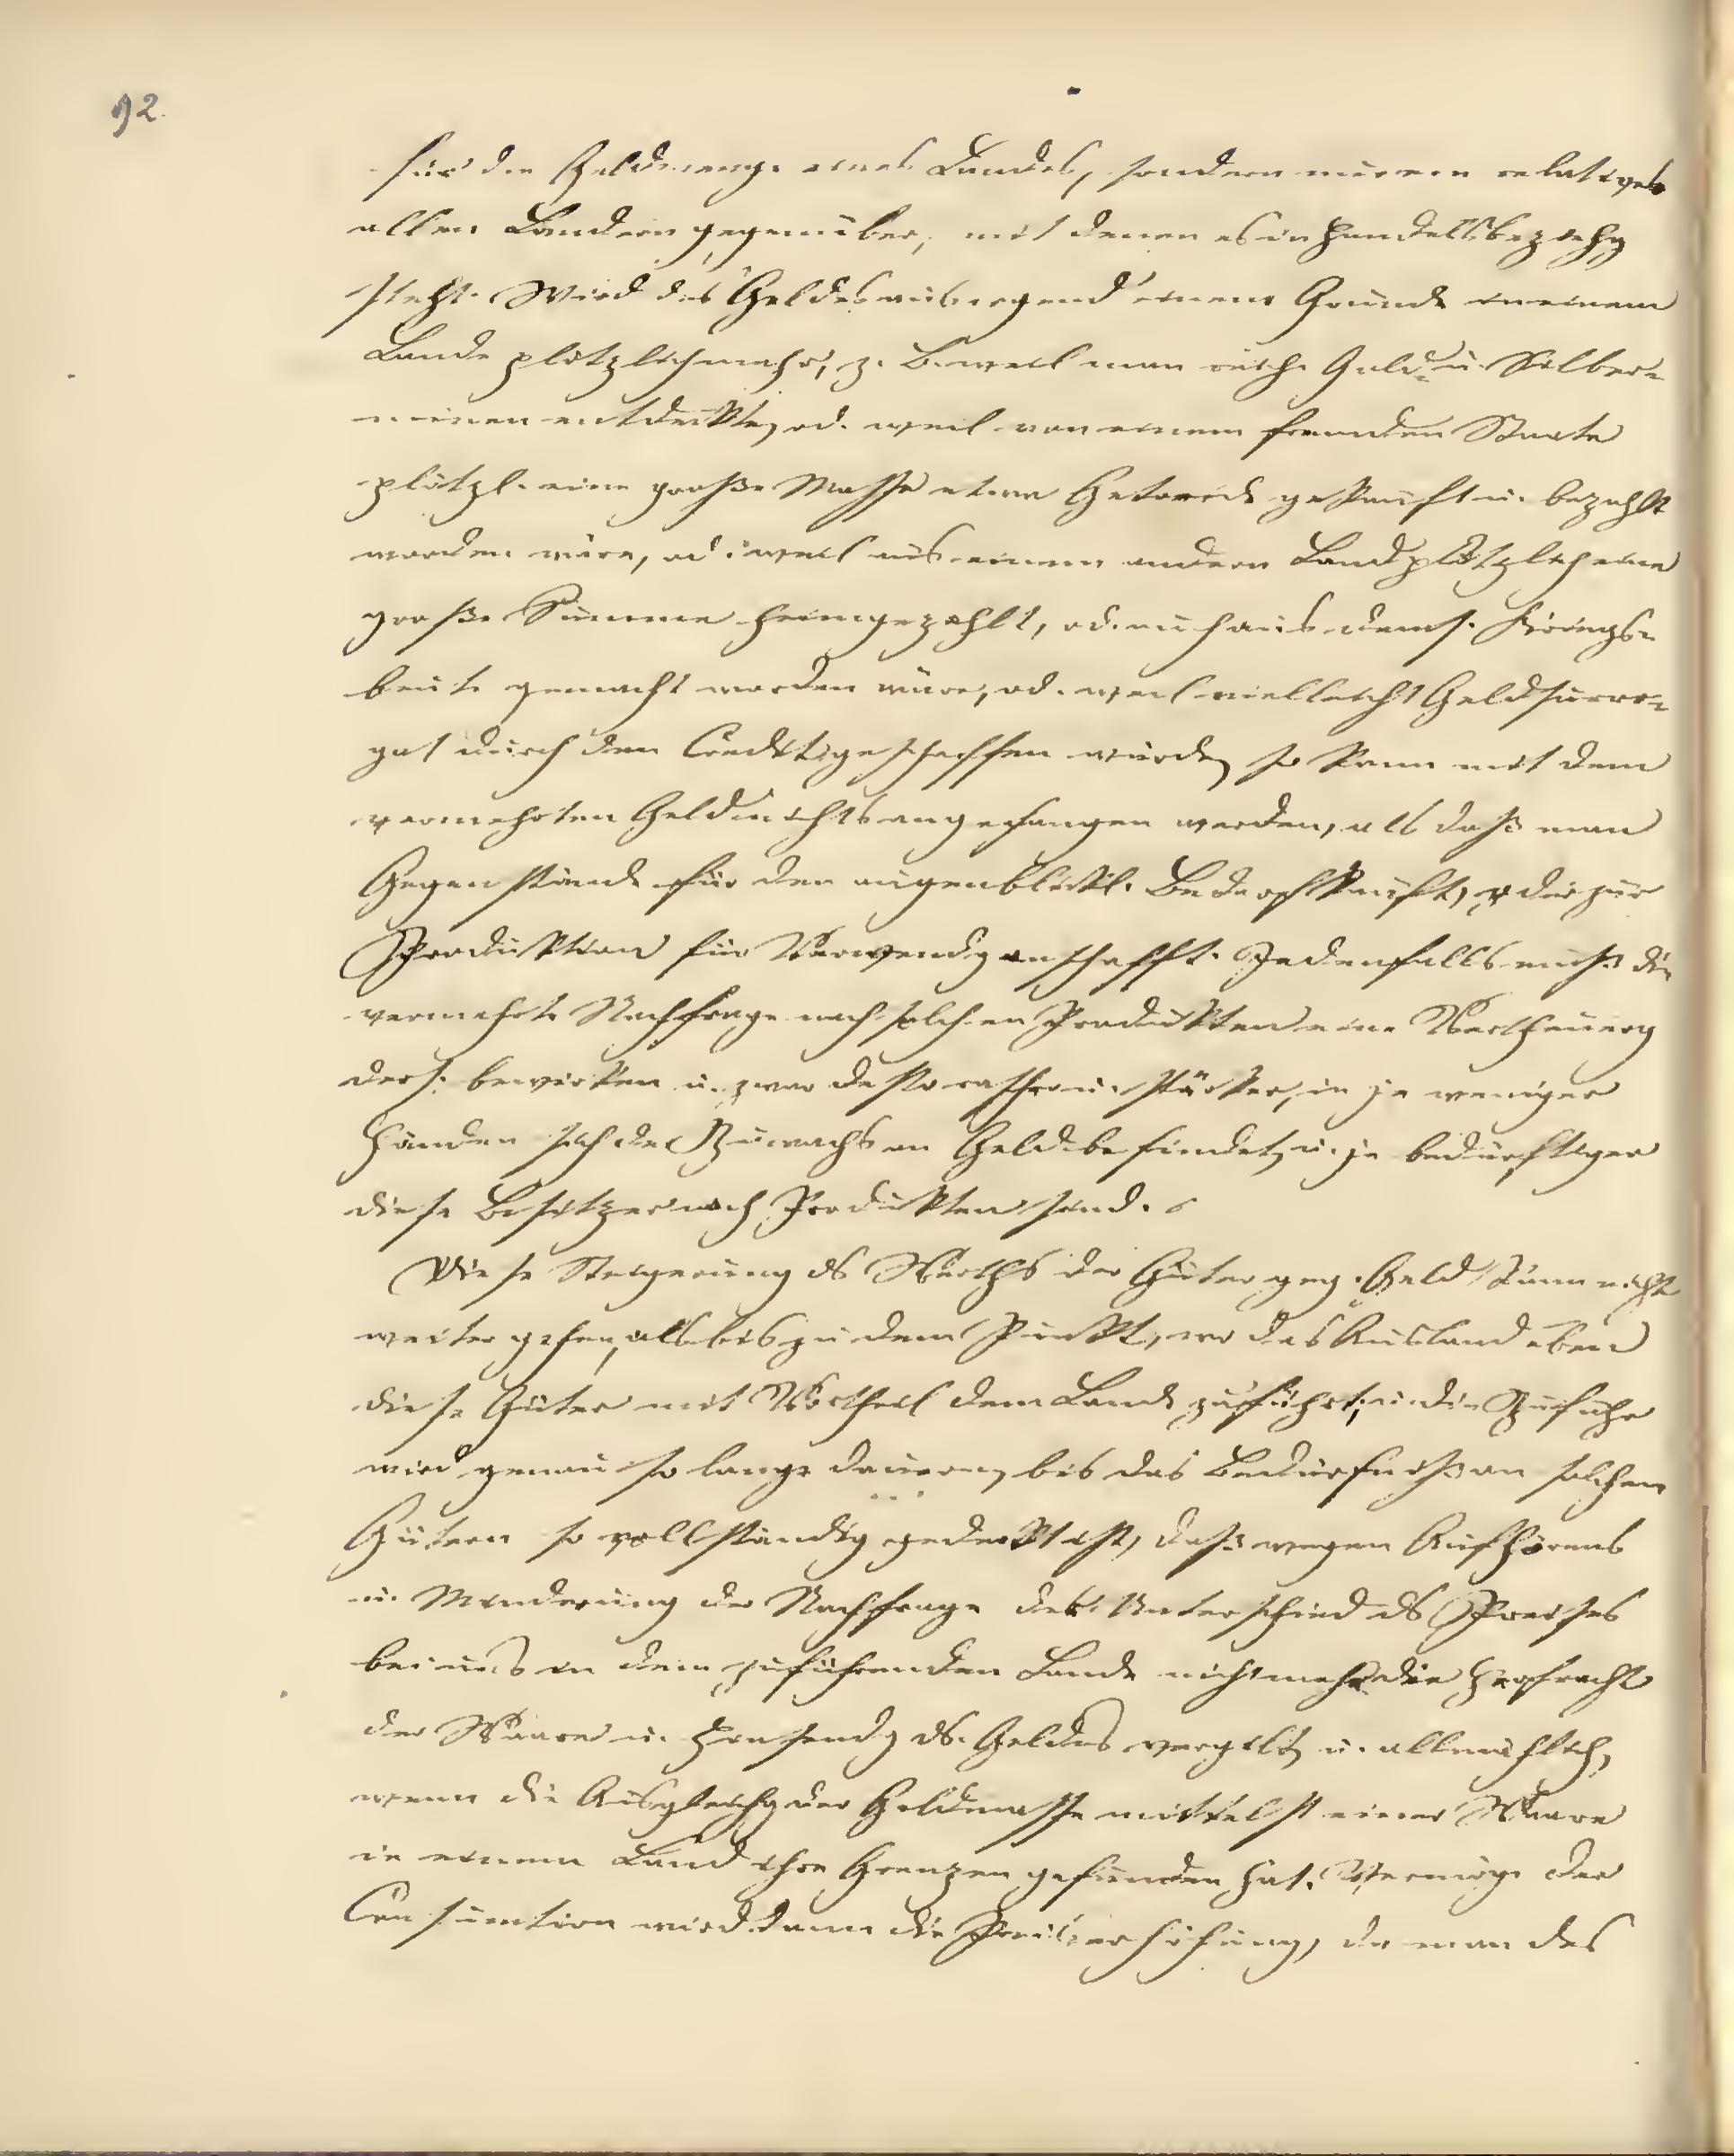 92.
für die Geldmenge eines Landes, sondern nur ein relatives
allen Ländern gegenüber, mit denen es in Handelsbeziehg
steht. Wird das Geld aus irgend einem Grunde in einem
Lande plötzlich mehr, z. B. weil man reiche Gold- u. Silber-
minen entdeckte, od. weil von einem fremden Staate
plötzl. eine große Masse etwa Getreide gekauft u. bezahlt
worden wäre, od. weil aus einem andern Land plötzlich eine
große Summe heimgezahlt, od. auch aus dems. Kriegs-
beute gemacht worden wäre, od. weil vielleicht Geldsurro-
gat durch den Credit geschaffen wurde, so kann mit dem
vermehrten Geld nichts angefangen werden, als daß man
Gegenstände für den augenblickl. Bedarf kauft, oder zur
Produktion für Verwendg anschafft. Jedenfalls muß die
vermehrte Nachfrage nach solchen Produkten eine Vertheuerg
ders. bewirken u. zwar desto rascher u. stärker, in je weniger
Händen sich der Zuwachs an Geld befindet, u. je bedürftiger
diese Besitzer nach Produkten sind.
Diese Steigerung ds Werths der Güter geg. Geld kann nicht
weiter gehen, als bis zu dem Punkt, wo das Ausland eben
diese Güter mit Vortheil dem Lande zuführt, u. die Zufuhr
wird genau so lange dauern, bis das Bedürfniß an solchen
Gütern so vollständig gedeckt ist, daß wegen Aufhörens
u. Minderung der Nachfrage der Unterschied ds Preises
bei uns in dem zuführenden Lande nicht mehr die Herfracht
der Waare u. Hinsendg ds. Geldes vergilt, u. allmählich,
wenn die Ausgleichg der Geldmasse mittelst einer Waare
in einem Land ihre Grenzen gefunden hat. Vermöge der
Consumtion wird dann die Preiserhöhung, da man des